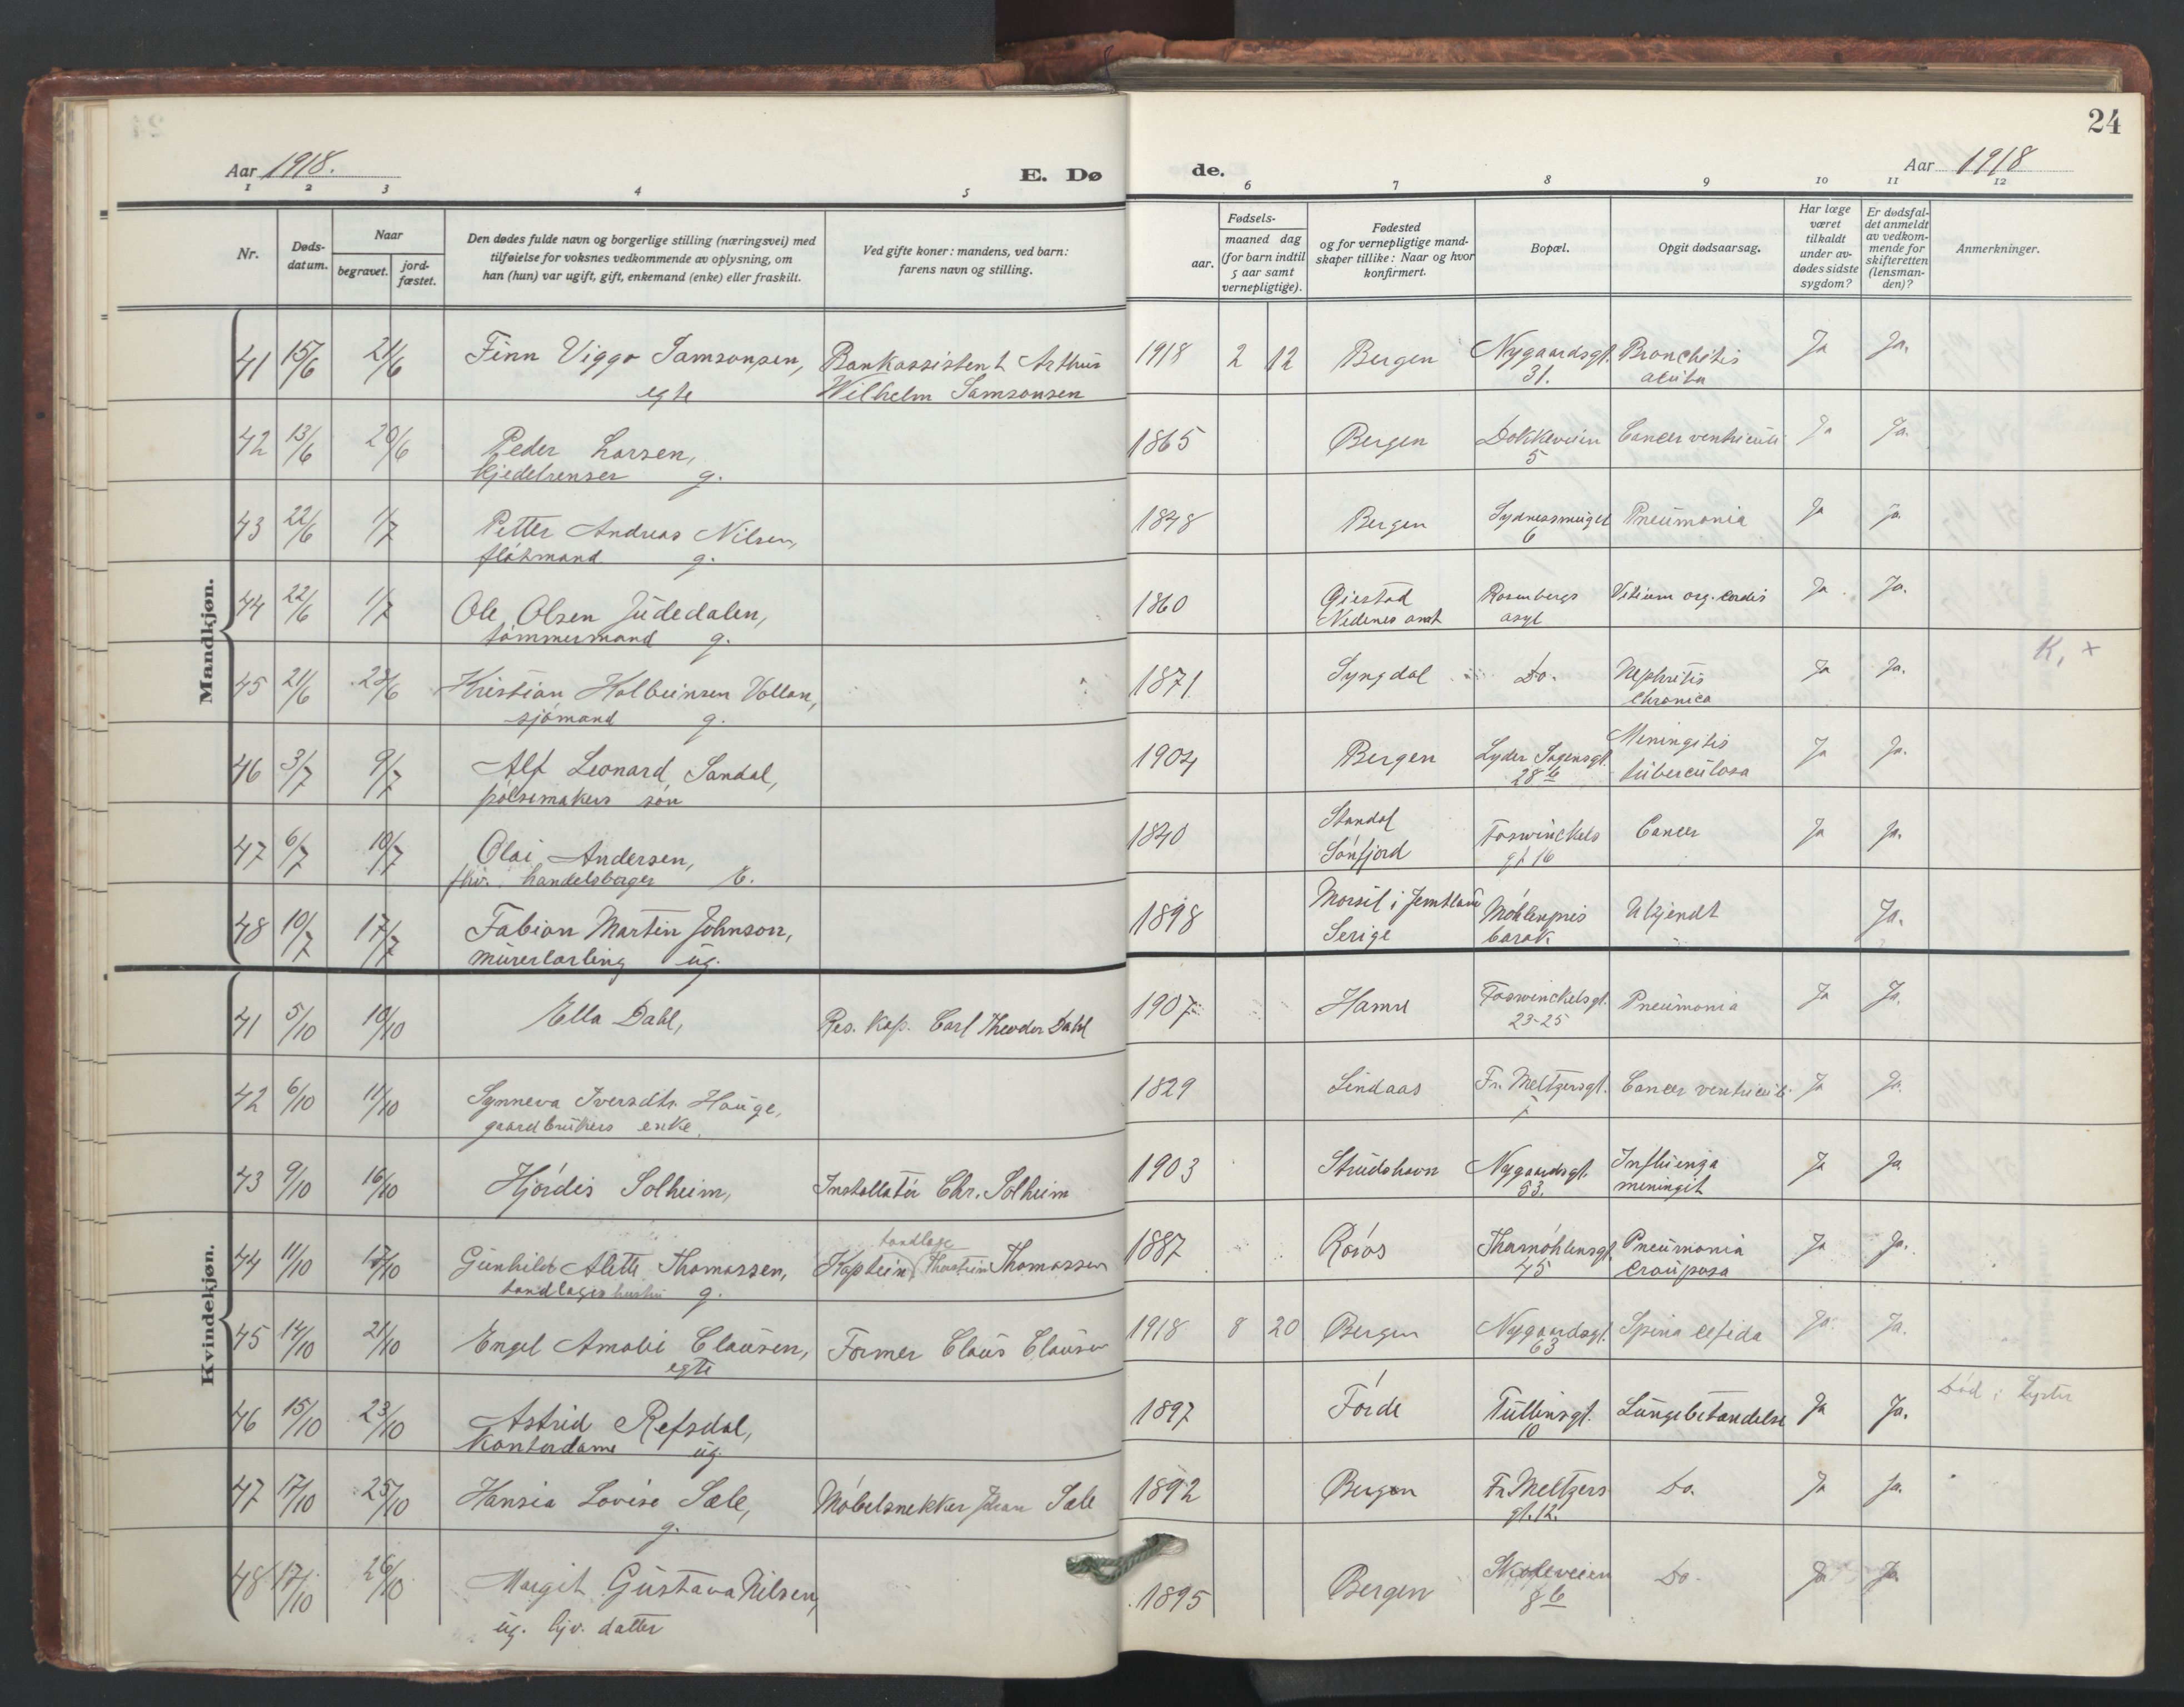 24
Aar 1918.
E. Dø
de.
Aar 1918
1 2 3 4 5 6 7 8 9 10 11 12
Nr.
Døds-
datum.
Naar
begravet.
jord-
fæstet.
Den dødes fulde navn og borgerlige stilling (næringsvei) med
tilføielse for voksnes vedkommende av oplysning, om
han (hun) var ugift, gift, enkemand (enke) eller fraskilt.
Ved gifte koner: mandens, ved barn:
farens navn og stilling.
Fødsels-
aar.
maaned dag
(for barn indtil
5 aar samt
vernepligtige).
Fødested
og for vernepligtige mand-
skaper tillike: Naar og hvor
konfirmert.
Bopæl.
Opgit dødsaarsag.
Har læge
været
tilkaldt
under av-
dødes sidste
sygdom?
Er dødsfal-
det anmeldt
av vedkom-
mende for
skifteretten
(lensman-
den)?
Anmerkninger.
Mandkjøn.
41 15/6 21/6 Finn Viggo Samsonsen, Bankassistent Arthur 1918 2 12 Bergen Nygaardsgt. Bronchitis Ja Ja.
egte Wilhelm Samsonsen 31. acuta
42 13/6 20/6 Peder Larsen, 1865 Bergen Dokkeveien Cancer ventriculi Ja Ja.
kjedelrenser g. 5
43 22/6 1/7 Petter Andreas Nilsen, 1848 Bergen Sydnessmuget Pneumonia Ja Ja.
flåtmand g. 6
44 22/6 1/7 Ole Olsen Judedalen, 1860 Gjestad Rosenbergs Vitium org. cordis Ja Ja.
tømmermand g. Nedenes amt asyl
45 21/6 23/6 Kristian Holbeinsen Vollan, 1871. Lyngdal Do. Nephritis Ja Ja. K, +
sjømand g. chronica
46 3/7 9/7 Alf Leonard Sandal, 1904 Bergen Lyder Sagensgt. Meningitis Ja Ja.
pølsemakers søn 28 b tuberculosa
47 6/7 10/7 Olai Andersen, 1840 Standal Foswinckels Cancer Ja Ja.
fhv. handelsborger E. Sønfjord gt 16
48 10/7 17/7 Fabian Martin Johnson, 1898 Morsil i Jemtland Møhlenpris Ukjendt Ja.
murerlærling ug. Serige barak
Kvindekjøn.
41 5/10 10/10 Ella Dahl, Res. Kap. Carl Theodor Dahl 1907 Hamre Foswinckelsgt. Pneumonia Ja Ja.
23-25
42 6/10 11/10 Synneva Iversdtr. Hauge, 1829 Lindaas Fr. Meltzersgt. Cancer ventriculi Ja Ja.
gaardbrukers enke.
43 9/10 16/10 Hjørdis Solheim, Installatør Chr. Solheim 1903 Strudshavn Nygaardsgt. Influenza Ja Ja
53. meningit
tandlæge
44 11/10 17/10 Gunhild Alette Thomassen, Kaptein Thorstein Thomassen 1887 Røros Thormøhlensgt. Pneumonia Ja Ja.
tandlæges hustru g. 45 crouposa
45 14/10 21/10 Engel Amalie Clausen, Former Claus Clausen 1918 8 20 Bergen Nygaardsgt. Spina befida Ja. Ja.
egte 63
46 15/10 23/10 Astrid Refsdal, 1897 Førde Tullinsgt. Lungebetændelse Ja Ja. Død i Lyster
Kontordame ug. 10
47 17/10 25/10 Hansia Lovise Sæle, Møbelsnekker Johan Sæle 1892 Bergen Fr. Meltzers Do. Ja Ja.
g. gt. 12.
48 17/10 26/10 Margit Gustava Nilsen, 1895 Bergen Skoleveien Do. Ja Ja.
ug. hjv. datter 8 b